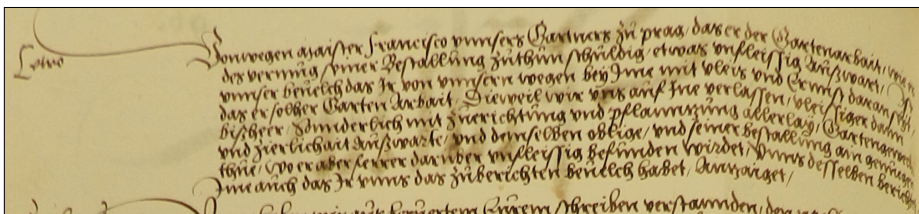 Vonwegen maister Francisco vnnsers Gartners zu prag, das er der Gartenarbait, wie er
des vermüg seiner Bestallung zuthun schuldig, etwas vnfleissig außwart, Ist
vnnser beuelch das Ir von vnnsern wegen bey Ime mit vleis vnd Ernnst daran seyt
das er solher Garten Arbait, Dieweil wir vns auf Ine verlassen, vleissiger dann
bisheer, sonnderlich mit zurichtung vnd pflanntzung allerlay, Gartengewechs
vnd zierlichait außwarte, vnd demselben oblige, vnd seiner bestallung ain genügen
thue, Wo er aber ferrer darüber vnfleissig befunden wirdet, vnns desselben berichtet
Ime auch das Ir vnns das zuberichten beuelch habet, Anzaiget,
schreiben verstannden,